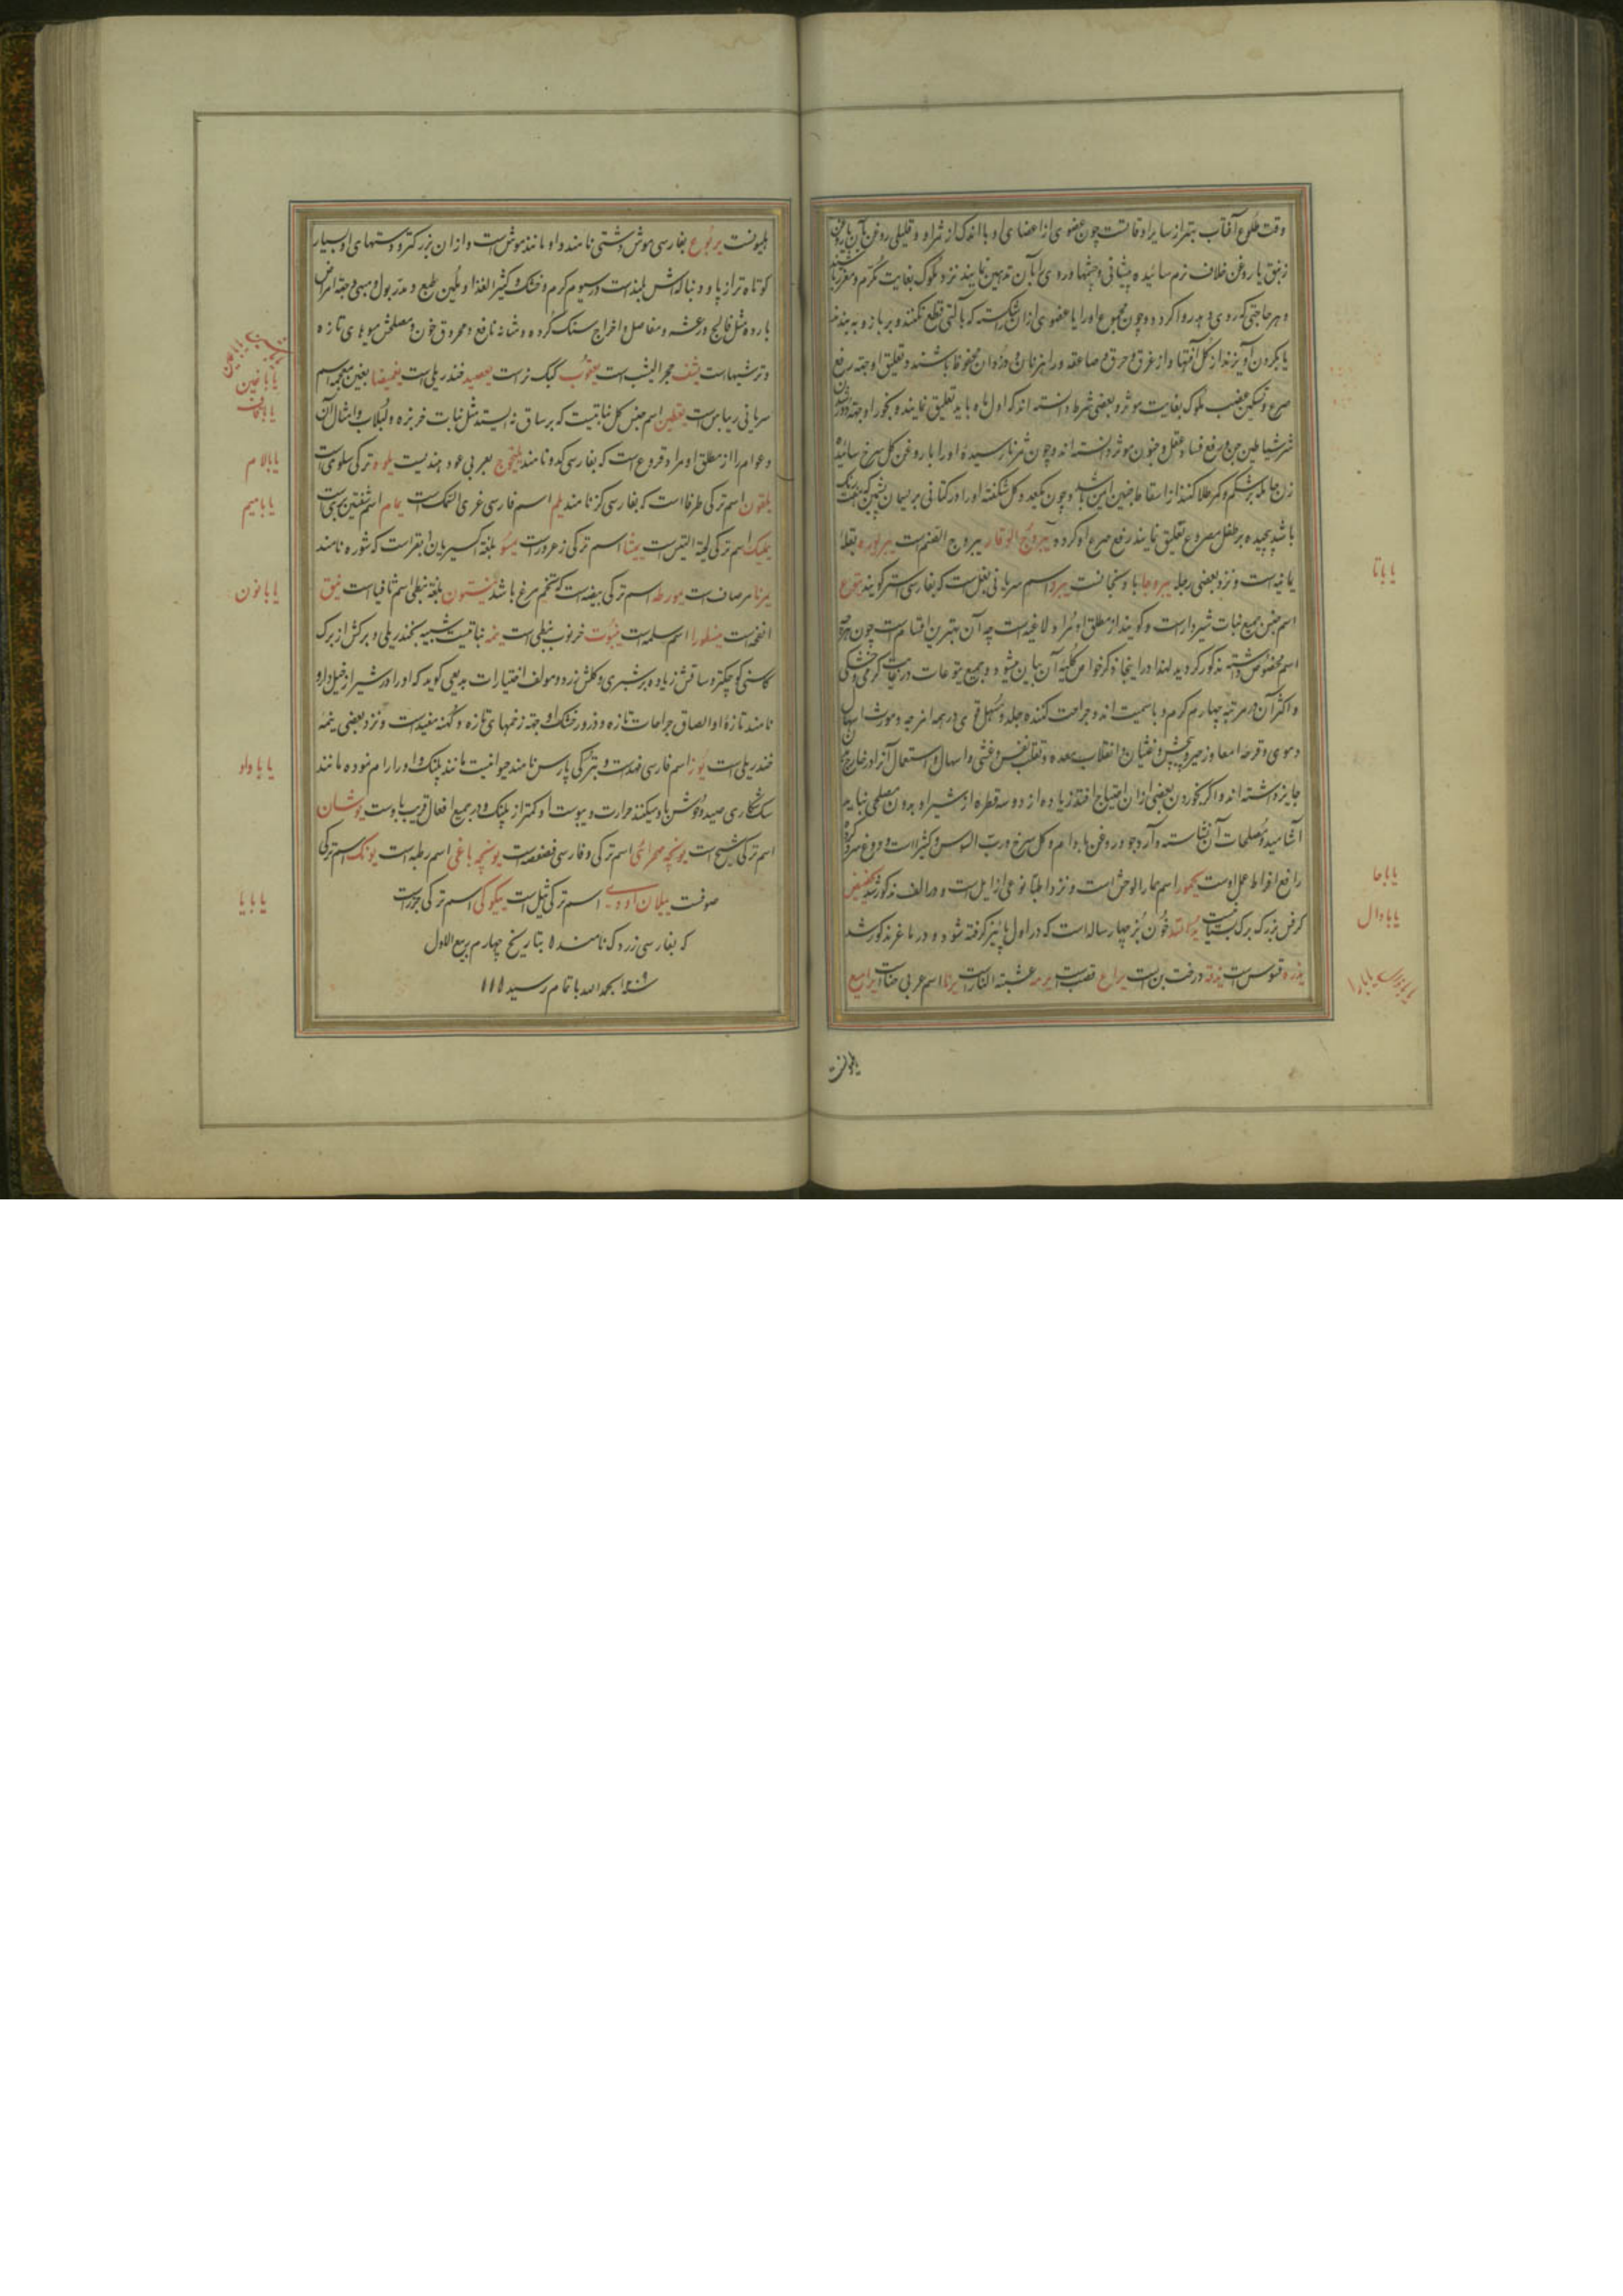 وقت طلوع آفتاب بهتر از سایر اوقاتست چون عضوی از اعضای او با اندک از ثمر او و قلیلی روغن بان یا روغن
زنبق یا روغن خلاف نرم سائیده پیشانی و چشمها و روی را بآن تدهین نمایند نزد ملوک بغایت مکرم و معزز باشند
و هر حاجتی که روی دهد روا گردد و چون مجموع او را یا عضوی از آن شکسته که بآلتی قطع نکنند و بر بازو به بندند
یا بگردن آویزند از کل آفتها و از غرق و حرق و صاعقه و راهزنان و دزدان محفوظ باشند و تعلیق او جهة رفع
صرع و تسکین غضب ملوک بغایت موثر و بعضی شرط دانسته اند که اول ماه باید تعلیق نمایند و بخور او جهة دور شدن
شر شیاطین جن و رفع فساد عقل و جنون موثر دانسته اند و چون ثمر نارسیده او را با روغن کل سرخ سائیده
زن حامله بر شکم و کمر طلا کند از اسقاط جنین ایمن باشد و چون یکعدد کل شکفته او را در کتانی بریسمان پشمین که بهفت رنگ
باشد پیچیده بر طفل مصروع تعلیق نمایند رفع صرع او کرده یبروج الوقاد یبروج الصنم است یبربوزه بقلۀ
یمانیه است و نزد بعضی رجله یبروجا باذنجانست یبرد اسم سریانی بغل است که بفارسی استر گویند یتوع
اسم جنس جمیع نبات شیردار است و گویند از مطلق او مراد لاغیه است چه آن بهترین اقسام است چون هریک
اسم مخصوص داشته مذکور گردید لهذا در اینجا ذکر خواص کلیۀ آن بیان میشود و جمیع یتوعات در نهایت گرمی و خشکی
و اکثر آن در مرتبۀ چهارم گرم و با سمیت اند و جراحت کنندۀ جلد و مسهل قوی در همه امزجه و مورث اسهال
دموی و قرحۀ امعا و زحیر و پیچش و غثیان و انقلاب معده و تقلب نفس و غشی و اسهال و استعمال آنرا در خارج بدن
جایز داشته اند و اگر بخوردن بعضی از آن احتیاج افتد زیاده از دو سه قطره از شیر او بدون مصلحی نباید
آشامید و مصلحات آن نشاسته و آرد جو و روغن بادام و کل سرخ و رب السوس و کثیرا است و دوغ سرد کرده
رافع افراط عمل اوست یحمور اسم حمار الوحش است و نزد اطبا نوعی از ایل است و در الف مذکور شد یخضیض
کرفس بزرک برک بستانیست یدالله خون بز چهار ساله است که در اول پائیز گرفته شود و در ماعز مذکور شد
یذره فنوس است یذقه درخت بن است یراع قصب است یرمه عشبة النار است یرنا اسم عربی حناست یرامیع
یاباتا
یاباحا
یابادال
هلیونست یربوع بفارسی موش دشتی نامند و او مانند موش است و از ان بزرگتر و دستهای او بسیار
کوتاه تر از پا و دنباله اش بلند است در سیوم گرم و خشک و کثیر الغذا و ملین طبع و مدر بول و مبهی و جهة امراض
بارده مثل فالج و رعشه و مفاصل و اخراج سنگ گرده و مثانه نافع و محرق خون و مصلحش میوهای تازه
و ترشیها است یشف حجر الیشب است یعقوب کبک نر است یعضید خندریلی است یغمیضا بغین معجمه اسم
سریانی ریباس است یقطین اسم جنس کل نباتیست که بر ساق نه ایستد مثل نبات خربزه و لبلاب و امثال آن
و عوام را از مطلق او مراد قروع است که بفارسی کدو نامند یلنجوج بعربی عود هندیست یلوه ترکی سلوی است
یلغون اسم ترکی طرفا است که بفارسی گز نامند یلم اسم فارسی غری السمک است یمام اسم شفنین بری است
یملیک اسم ترکی لحیة التیس است یمشا اسم ترکی زعرور است یمسو بلغة اکسیریان ابقر است که شوره نامند
یرنا مرصاف است یمورطه اسم ترکی بیضه است که تخم مرغ باشد ینستون بلغة نبطی اسم ثافیا است ینق
انفحه است ینطورا اسم سلمه است ینبوت خرنوب نبطی است ینمه نباتیست شبیه بخندریلی و برکش از برک
کاسنی کوچکتر و ساقش زیاده بر شبری و گلش زرد و مولف اختیارات بدیعی گوید که او را در شیراز خیل دارو
نامند تازۀ او الصاق جراحات تازه و ذرور خشک او جهة زخمهای تازه و کهنه مفید است و نزد بعضی ینمه
خندریلی است یوز اسم فارسی فهد است و بترکی پارس نامند حیوانیست مانند پلنگ و او را رام نموده مانند
سگ شکاری صید وحوش باو میکنند حرارت و یبوست او کمتر از پلنگ و در جمیع افعال قریب باوست یوشان
اسم ترکی شیح است یونجه صحرائی اسم ترکی و فارسی فصفصه است یونجه باغی اسم رطبه است یونک اسم ترکی
صوفست ییلان اودی اسم ترکی ثیل است ییکوکی اسم ترکی جزر است
که بفارسی زردک نامند ه بتاریخ چهارم ربیع الاول
سنه الحمدلله باتمام رسید ۱۱۱
یاباغین
یاباقاف
یابالام
یابامیم
یابانون
یاباواو
یابایا